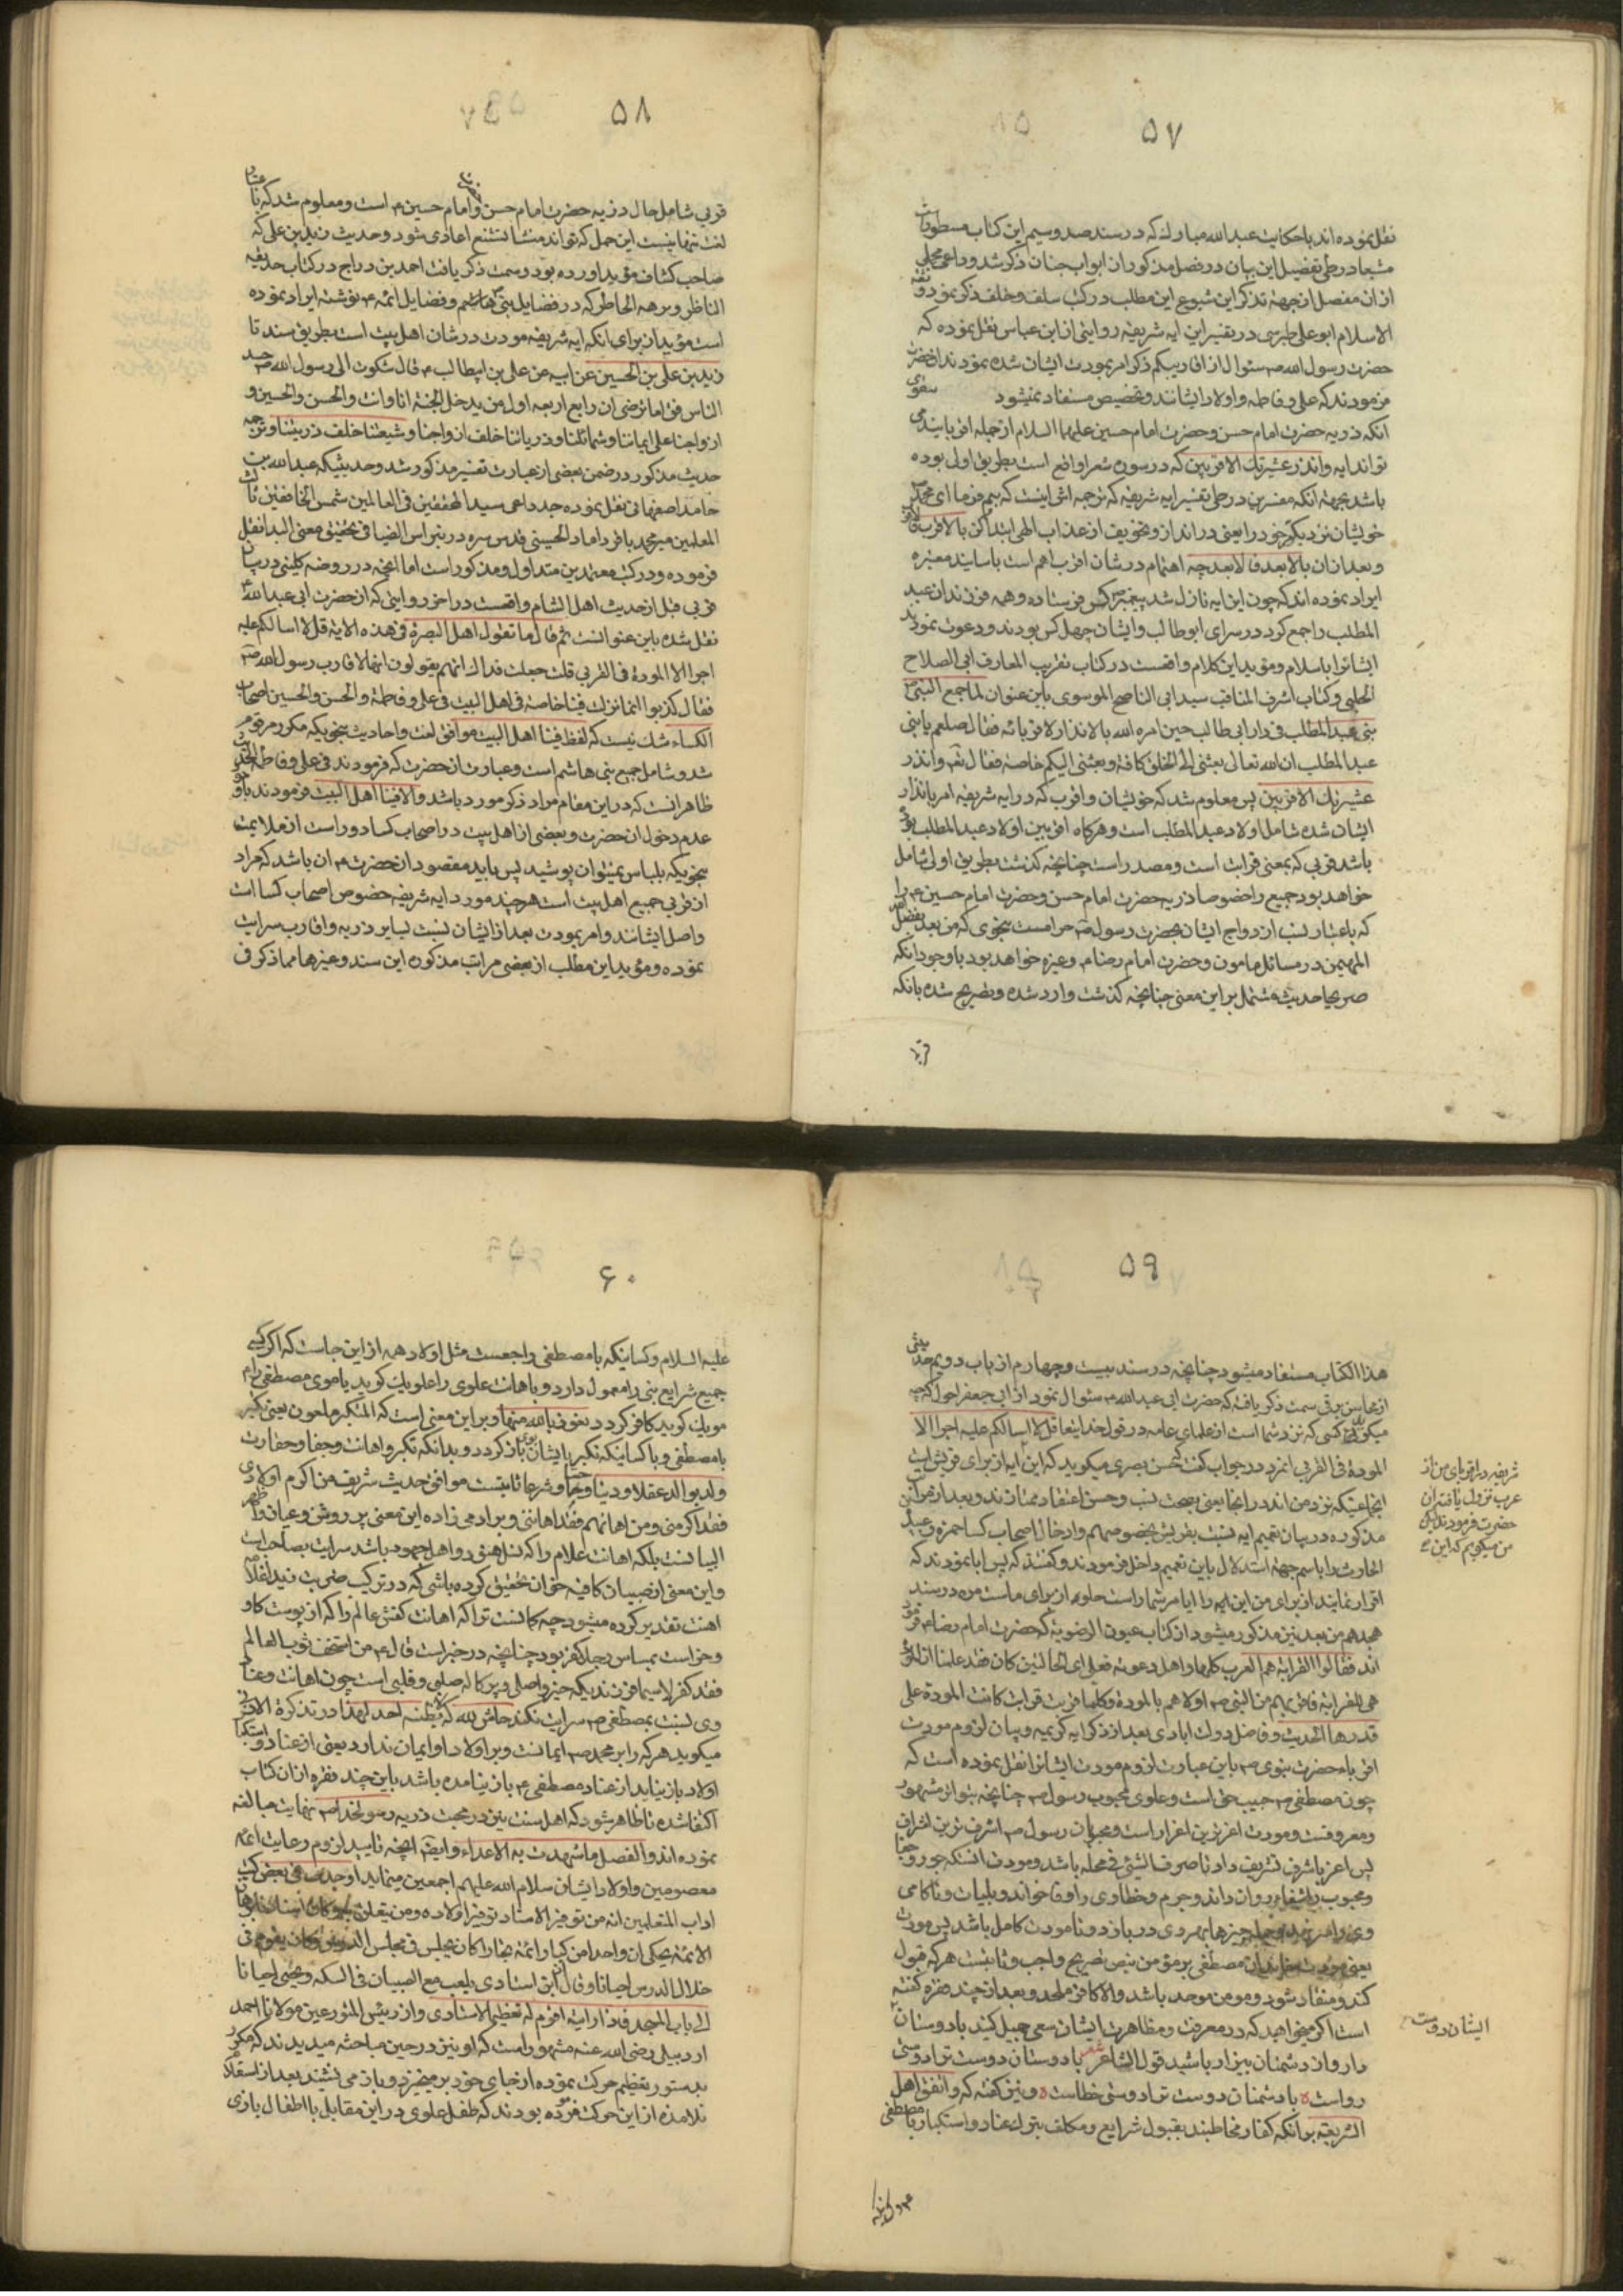 ۵۷
نقل نموده اند با حکایت عبد الله مبارک که در سند صد و سیم این کتاب مسطور است
مشبعا در طی تفصیل این بیان در فصل مذکور از ابواب جنان ذکر شد و داعی مجملی
از ان مفصل از جهة تذکر این شیوع این مطلب در کتب سلف و خلف ذکر نمود و ثقه
الاسلام ابو علی طبرسی در تفسیر این ایه شریفه روایتی از ابن عباس نقل نموده که
حضرت رسول الله ص سئوال از اقاربیکه ذکر امر بمودت ایشان شده نمودند انحضرت
فرمودند که علی و فاطمه و اولاد ایشانند و تخصیص مستفاد نمیشود سوی
انکه ذریه حضرت امام حسن و حضرت امام حسین علیهما السلام از جمله اقربایند می
تواند ایه وانذر عشیرتک الاقربین که در سوره شعرا واقع است بطریق اولی بوده
باشد بجهة انکه مفسرین در طی تفسیر ایه شریفه که ترجمه اش اینست که بیم فرما ای محمد ص
خویشان نزدیکتر خود را یعنی در انذار و تخویف از عذاب الهی ابتدا کن بالاقرب فالاقرب
و بعد ازان بالابعد فالابعد چه اهتمام در شان اقرب اهم است باسانید معتبره
ایراد نموده اند که چون این ایه نازل شد پیغمبر ص کس فرستاده و همه فرزندان عبد
المطلب را جمع کرد در سرای ابو طالب و ایشان چهل کس بودند و دعوت نمودند
ایشانرا باسلام و مؤید این کلام واقعست در کتاب تقریب المعارف ابی الصلاح
الحلبی و کتاب اشرف المناقب سید ابی الناصح الموسوی باین عنوان لما جمع النبی ص
بنی عبد المطلب فی دار ابی طالب حین امره الله بالانذار لاقربائه فقال صلعم یا بنی
عبد المطلب ان الله تعالی بعثنی الی الخلق کافة و بعثنی الیکم خاصة فقال تعم وانذر
عشیرتک الاقربین پس معلوم شد که خویشان و اقرب که در ایه شریفه امر بانذار
ایشان شده شامل اولاد عبد المطلب است و هرکاه اقربین اولاد عبد المطلب بوده
باشد قربی که بمعنی قرابت است و مصدر است چنانچه کذشت بطریق اولی شامل
خواهد بود جمیع را خصوصا ذریه حضرت امام حسن و حضرت امام حسین ع را
که باعتبار نسب ازدواج ایشان بحضرت رسول ص حرامست بنحوی که من بعد بفضل الله
المهیمن در مسائل مامون و حضرت امام رضا ع و غیره خواهد بود با وجود انکه
صریحا حدیث مشتمل بر این معنی چنانچه کذشت وارد شده و تصریح شده بانکه
قربی
۵۸
قربی شامل حال ذریه حضرت امام حسن و امام حسین ع است و معلوم شد که تا
لغت تنها نیست این حمل که تواند منشا تشنع اعادی شود و حدیث زید بن علی که
صاحب کشاف مؤید اورده بود و سمت ذکر یافت احمد بن دراج در کتاب حدیقه
الناظر و نزهه الخاطر که در فضایل بنی هاشم و فضایل ائمه ع نوشته ایراد نموده
است مؤید از برای انکه ایه شریفه مودت در شان اهل بیت است بطریق سند تا
زید بن علی بن الحسین عن ابیه عن علی بن ابیطالب ع قال شکوت الی رسول الله ص حسد
الناس فی اما ترضی ان رابع اربعه اول من یدخل الجنة انا وانت والحسن والحسین و
ازواجنا علی ایماننا و شمائلنا و ذریاتنا خلف ازواجنا و شیعتنا خلف ذریتنا و ترجمه
حدیث مذکور در ضمن بعضی از عبارت تفسیر مذکور شد و حدیثیکه عبد الله بن
حامد اصفهانی نقل نموده جد داعی سید المحققین فی العالمین شمس الخافقین ثالث
المعلمین میر محمد باقر داماد الحسینی قدس سره در نبراس الضیا فی تحقیق معنی البدا نقل
فرموده و در کتب معتمدین متداول و مذکور است اما انچه در روضه کلینی در بیان
قربی قبل از حدیث اهل الشام واقعست در اخر روایتی که از حضرت ابی عبد الله ع
نقل شده باین عنوانست ثم قال ما تقول اهل البصرة فی هذه الایة قل لا اسالکم علیه
اجرا الا المودة فی القربی قلت جعلت فداک انهم یقولون انها لاقارب رسول الله ص
فقال کذبوا انما نزلت فینا خاصة فی اهل البیت فی علی و فاطمة والحسن والحسین اصحاب
الکساء شک نیست که لفظ فینا اهل البیت موافق لغت و احادیث بنحویکه مکرر مرقوم
شد و شامل جمیع بنی هاشم است و عبارت ان حضرت که فرمودند فی علی و فاطمة الحدیث
ظاهر انست که در این مقام مراد ذکر مورد باشد والا فینا اهل البیت فرمودند با وجود
عدم دخول ان حضرت و بعضی از اهل بیت در اصحاب کسا دور است از ملایمت
بنحویکه بلباس نمیتوان پوشید پس باید مقصود ان حضرت ع ان باشد که مراد
از قربی جمیع اهل بیت است هرچند مورد ایه شریفه خصوص اصحاب کسا است
و اصل ایشانند و امر بمودت بعد از ایشان نسبت بسایر ذریه و اقارب سرایت
نموده و مؤید این مطلب از بعضی مراتب مذکوره این سند و غیرها مما ذکر فی
۵۹
هذا الکتاب مستفاد میشود چنانچه در سند بیست و چهارم از باب دویم حدیثی
از محاسن برقی سمت ذکر یافته که حضرت ابی عبد الله ع سئوال نمود از ابی جعفر احول که چه
میکوید کسی که نزد شما است از علمای عامه در قول خدایتعا قل لا اسالکم علیه اجرا الا
المودة فی القربی انمرد در جواب کفت حسن بصری میکوید که این ایه از برای قریش است
مذکوره در بیان تعمیم ایه نسبت بقریش بخصوصهم و ادخال اصحاب کسا حمزه و عبید
الحارث را باسم جهة استدلال باین تعمیم داخل فرمودند و کفتند که پس ابا نمودند که
اقرار نمایند از برای من این ایه را ایا مر شما راست حلوه از برای ماست مره در سند
هجدهم من بعد نیز مذکور میشود از کتاب عیون الرضویة که حضرت امام رضا ع فرموده
اند فقالوا القرابة هم العرب کلها و اهل دعوته فعلی ای الحالتین کان فقد علمنا ان المودة
هی للقرابة فاقربهم من النبی ص اولاهم بالمودة و کلما قربت قرابت کانت المودة علی
قدرها الحدیث و فاضل دولت ابادی بعد از ذکر ایه کریمه و بیان لزوم مودت
اقرباء حضرت نبوی ص باین عبارت لزوم مودت ایشانرا نقل نموده است که
چون مصطفی ص حبیب حق است و علوی محبوب رسول ص چنانچه بتواتر مشهور
و معروفست و مودت اعز ترین اعزاز است و محبوبان رسول ص اشرف ترین اشراف
پس اعز باشرف تشریف داد تا صرف الشئ فی محله باشد و مودت انستکه جور و جفا
کند و منقاد شود و مومن موحد باشد والا کافر ملحد و بعد از چند فقره کفته
است اکر میخواهید که در معرفت و مظاهرت ایشان سعی جمیل کنید با دوستان
دار و از دشمنان بیزار باشید قول الشاعر شعر با دوستان دوست تو ادوستی
رواست ه با دشمنان دوست تو ادوستی خطاست ه و نیز کفته که واتفق اهل
الشریعة بر انکه کفار مخاطبند بقبول شرایع و مکلف بترک عناد و استکبار با مصطفی
شریفه در اقربای من از
عرب نزول یافته ان
حضرت فرمودند لیکن
من میکویم که این
ایشان دوست
۶۰
علیه السلام و کسانیکه با مصطفی راجعست مثل اولاد همه از این جاست که اکر کسی
جمیع شرایع نبی را معمول دارد و باهانت علوی را علویک کوید یا موی مصطفی را
مویک کوید کافر کردد نعوذ بالله منها و بر این معنی است که المتکبر ملعون یعنی تکبر
با مصطفی و با کسانیکه تکبر بایشان بوی باز کردد و بدانکه تکبر و اهانت و جفا و حقارت
ولد بوالد عقلا و دینا و حسا و شرعا ثابتست موافق حدیث شریف من اکرم اولادی
فقد اکرمنی و من اهانهم فقد اهاننی و برادمی زاده این معنی پر روشن و عیان و ظاهر
البیانست بلکه اهانت غلام را که نسل هندو و اهل جهود باشد سرایت بصاحب است
و این معنی از صبیان کافیه خوان تحقیق کرده باشی که در ترکیب ضربت زیدا غلامه
اهنت تقدیر کرده میشود چه کمانست ترا که اهانت کفش عالم را که از پوست کاو
و خر است بمساس رجل کفر بود چنانچه در خبر است قال ع من استخف ثوب العالم
فقد کفر لاسیما فرزندیکه جزو اصلی و پرکاله صلبی و قلبی است چون اهانت و عناد
وی نسبت بمصطفی ص سرایت نکند حاش لله که یظنه احد لهذا در تذکرة الاولیا
میکوید هر که را بر محمد ص ایمانست و بر اولاد او ایمان ندارد یعنی از عناد و استکبار
اولاد باز نیاید از عناد مصطفی ع باز نیامده باشد باین چند فقره از ان کتاب
اکتفا شده تا ظاهر شود که اهل سنت نیز در محبت ذریه رسولخدا ص نهایت مبالغه
نموده اند والفضل ما شهدت به الاعداء و ایضا انچه تایید لزوم رعایت ائمه
معصومین و اولاد ایشان سلام الله علیهم اجمعین مینماید اوجدت فی بعض کتب
اداب المتعلمین انه من توقیر الاستاد توقیر اولاده و من یتعلق به
الائمة یحکی ان واحدا من کبار ائمة بخارا کان یجلس فی مجلس الدرس و کان یقوم فی
خلال الدرس احیانا و قال ان ابن استادی یلعب مع الصبیان فی السکه و یجئ احیانا
الی باب المسجد فاذا رایته اقوم له تعظیما لاستادی و از رییس المتورعین مولانا احمد
اردبیلی رضی الله عنه مشهور است که او نیز در حین مباحثه میدیدند که مکرر
بدستور تعظیم حرکت نموده از جای خود بر میخیزد و باز می نشیند بعد از استعلام
تلامذه از این حرکت فرموده بودند که طفل علوی در این مقابل با اطفال بازی